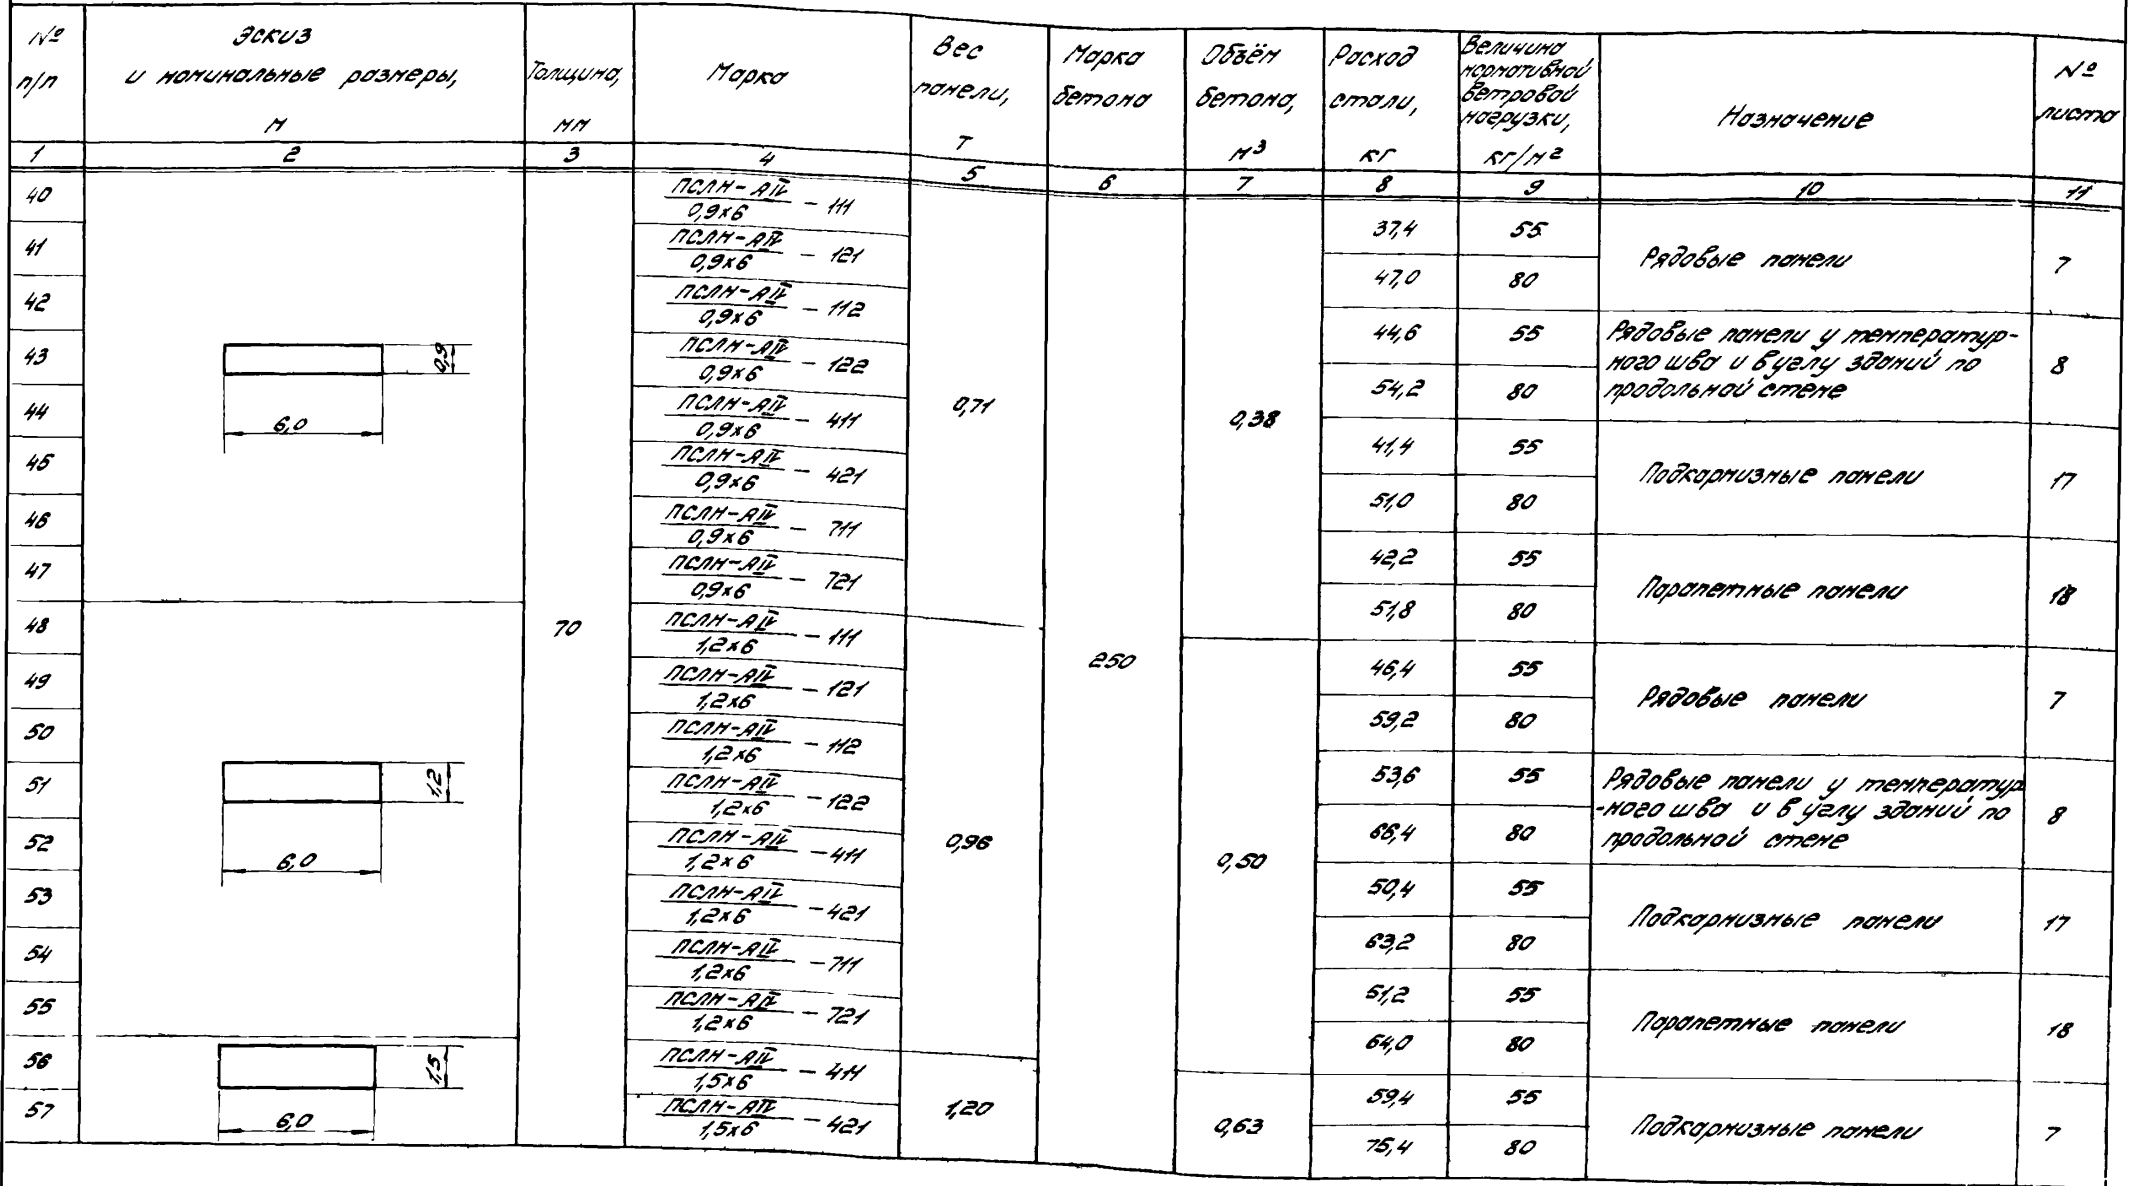 № п/п | Эскиз и номинальные размеры, м | Толщина, мм | Марка | Вес панели, т | Марка бетона | Объём бетона, м³ | Расход стали, кг | Величина нормативной ветровой нагрузки, кг/м² | Назначение | № листа
1 | 2 | 3 | 4 | 5 | 6 | 7 | 8 | 9 | 10 | 11
40 | 0,9 6,0 | 70 | ПСЛН-АIV/0,9х6 - 111 | 0,71 | 250 | 0,38 | 37,4 | 55 | Рядовые панели | 7
41 | ПСЛН-АIV/0,9х6 - 121 | 47,0 | 80
42 | ПСЛН-АIV/0,9х6 - 112 | 44,6 | 55 | Рядовые панели у температур-
ного шва и в углу зданий по
продольной стене | 8
43 | ПСЛН-АIV/0,9х6 - 122 | 54,2 | 80
44 | ПСЛН-АIV/0,9х6 - 411 | 41,4 | 55 | Подкарнизные панели | 17
45 | ПСЛН-АIV/0,9х6 - 421 | 51,0 | 80
46 | ПСЛН-АIV/0,9х6 - 711 | 42,2 | 55 | Парапетные панели | 18
47 | ПСЛН-АIV/0,9х6 - 721 | 51,8 | 80
48 | 1,2 6,0 | ПСЛН-АIV/1,2х6 - 111 | 0,96 | 0,50 | 46,4 | 55 | Рядовые панели | 7
49 | ПСЛН-АIV/1,2х6 - 121 | 59,2 | 80
50 | ПСЛН-АIV/1,2х6 - 112 | 53,6 | 55 | Рядовые панели у температур
-ного шва и в углу зданий по
продольной стене | 8
51 | ПСЛН-АIV/1,2х6 - 122 | 66,4 | 80
52 | ПСЛН-АIV/1,2х6 - 411 | 50,4 | 55 | Подкарнизные панели | 17
53 | ПСЛН-АIV/1,2х6 - 421 | 63,2 | 80
54 | ПСЛН-АIV/1,2х6 - 711 | 51,2 | 55 | Парапетные панели | 18
55 | ПСЛН-АIV/1,2х6 - 721 | 64,0 | 80
56 | 1,5 6,0 | ПСЛН-АIV/1,5х6 - 411 | 1,20 | 0,63 | 59,4 | 55 | Подкарнизные панели | 7
57 | ПСЛН-АIV/1,5х6 - 421 | 75,4 | 80